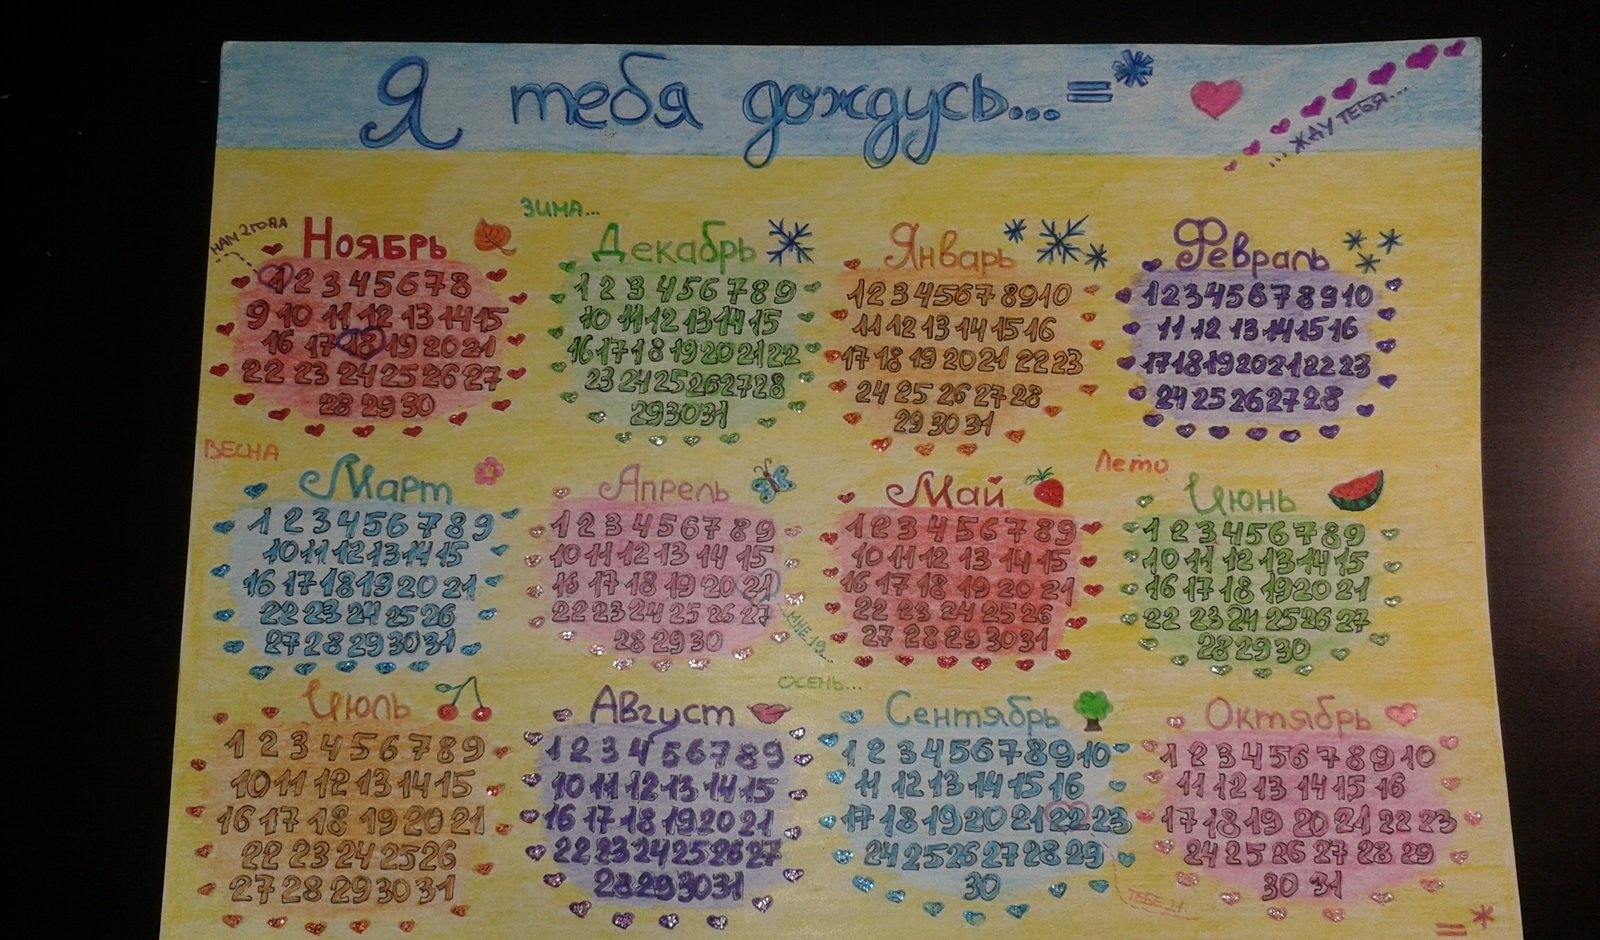 Я тебя дождусь...=*
...ЖДУ ТЕБЯ...
ЗИМА...
НАМ 2 ГОДА
Ноябрь
1 2 3 4 5 6 7 8
9 10 11 12 13 14 15
16 17 18 19 20 21
22 23 24 25 26 27
28 29 30
Декабрь
1 2 3 4 5 6 7 8 9
10 11 12 13 14 15
16 17 18 19 20 21 22
23 24 25 26 27 28
29 30 31
Январь
1 2 3 4 5 6 7 8 9 10
11 12 13 14 15 16
17 18 19 20 21 22 23
24 25 26 27 28
29 30 31
Февраль
1 2 3 4 5 6 7 8 9 10
11 12 13 14 15 16
17 18 19 20 21 22 23
24 25 26 27 28
ВЕСНА
Март
1 2 3 4 5 6 7 8 9
10 11 12 13 14 15
16 17 18 19 20 21
22 23 24 25 26
27 28 29 30 31
Апрель
1 2 3 4 5 6 7 8 9
10 11 12 13 14 15
16 17 18 19 20 21
22 23 24 25 26 27
28 29 30
...МНЕ 19...
Май
1 2 3 4 5 6 7 8 9
10 11 12 13 14 15
16 17 18 19 20 21
22 23 24 25 26
27 28 29 30 31
Лето
Июнь
1 2 3 4 5 6 7 8 9
10 11 12 13 14 15
16 17 18 19 20 21
22 23 24 25 26 27
28 29 30
Июль
1 2 3 4 5 6 7 8 9
10 11 12 13 14 15
16 17 18 19 20 21
22 23 24 25 26
27 28 29 30 31
Август
1 2 3 4 5 6 7 8 9
10 11 12 13 14 15
16 17 18 19 20 21
22 23 24 25 26 27
28 29 30 31
ОСЕНЬ...
Сентябрь
1 2 3 4 5 6 7 8 9 10
11 12 13 14 15 16
17 18 19 20 21 22 23
24 25 26 27 28 29
30
ТЕБЕ 21...
Октябрь
1 2 3 4 5 6 7 8 9 10
11 12 13 14 15 16
17 18 19 20 21 22 23
24 25 26 27 28 29
30 31
=*